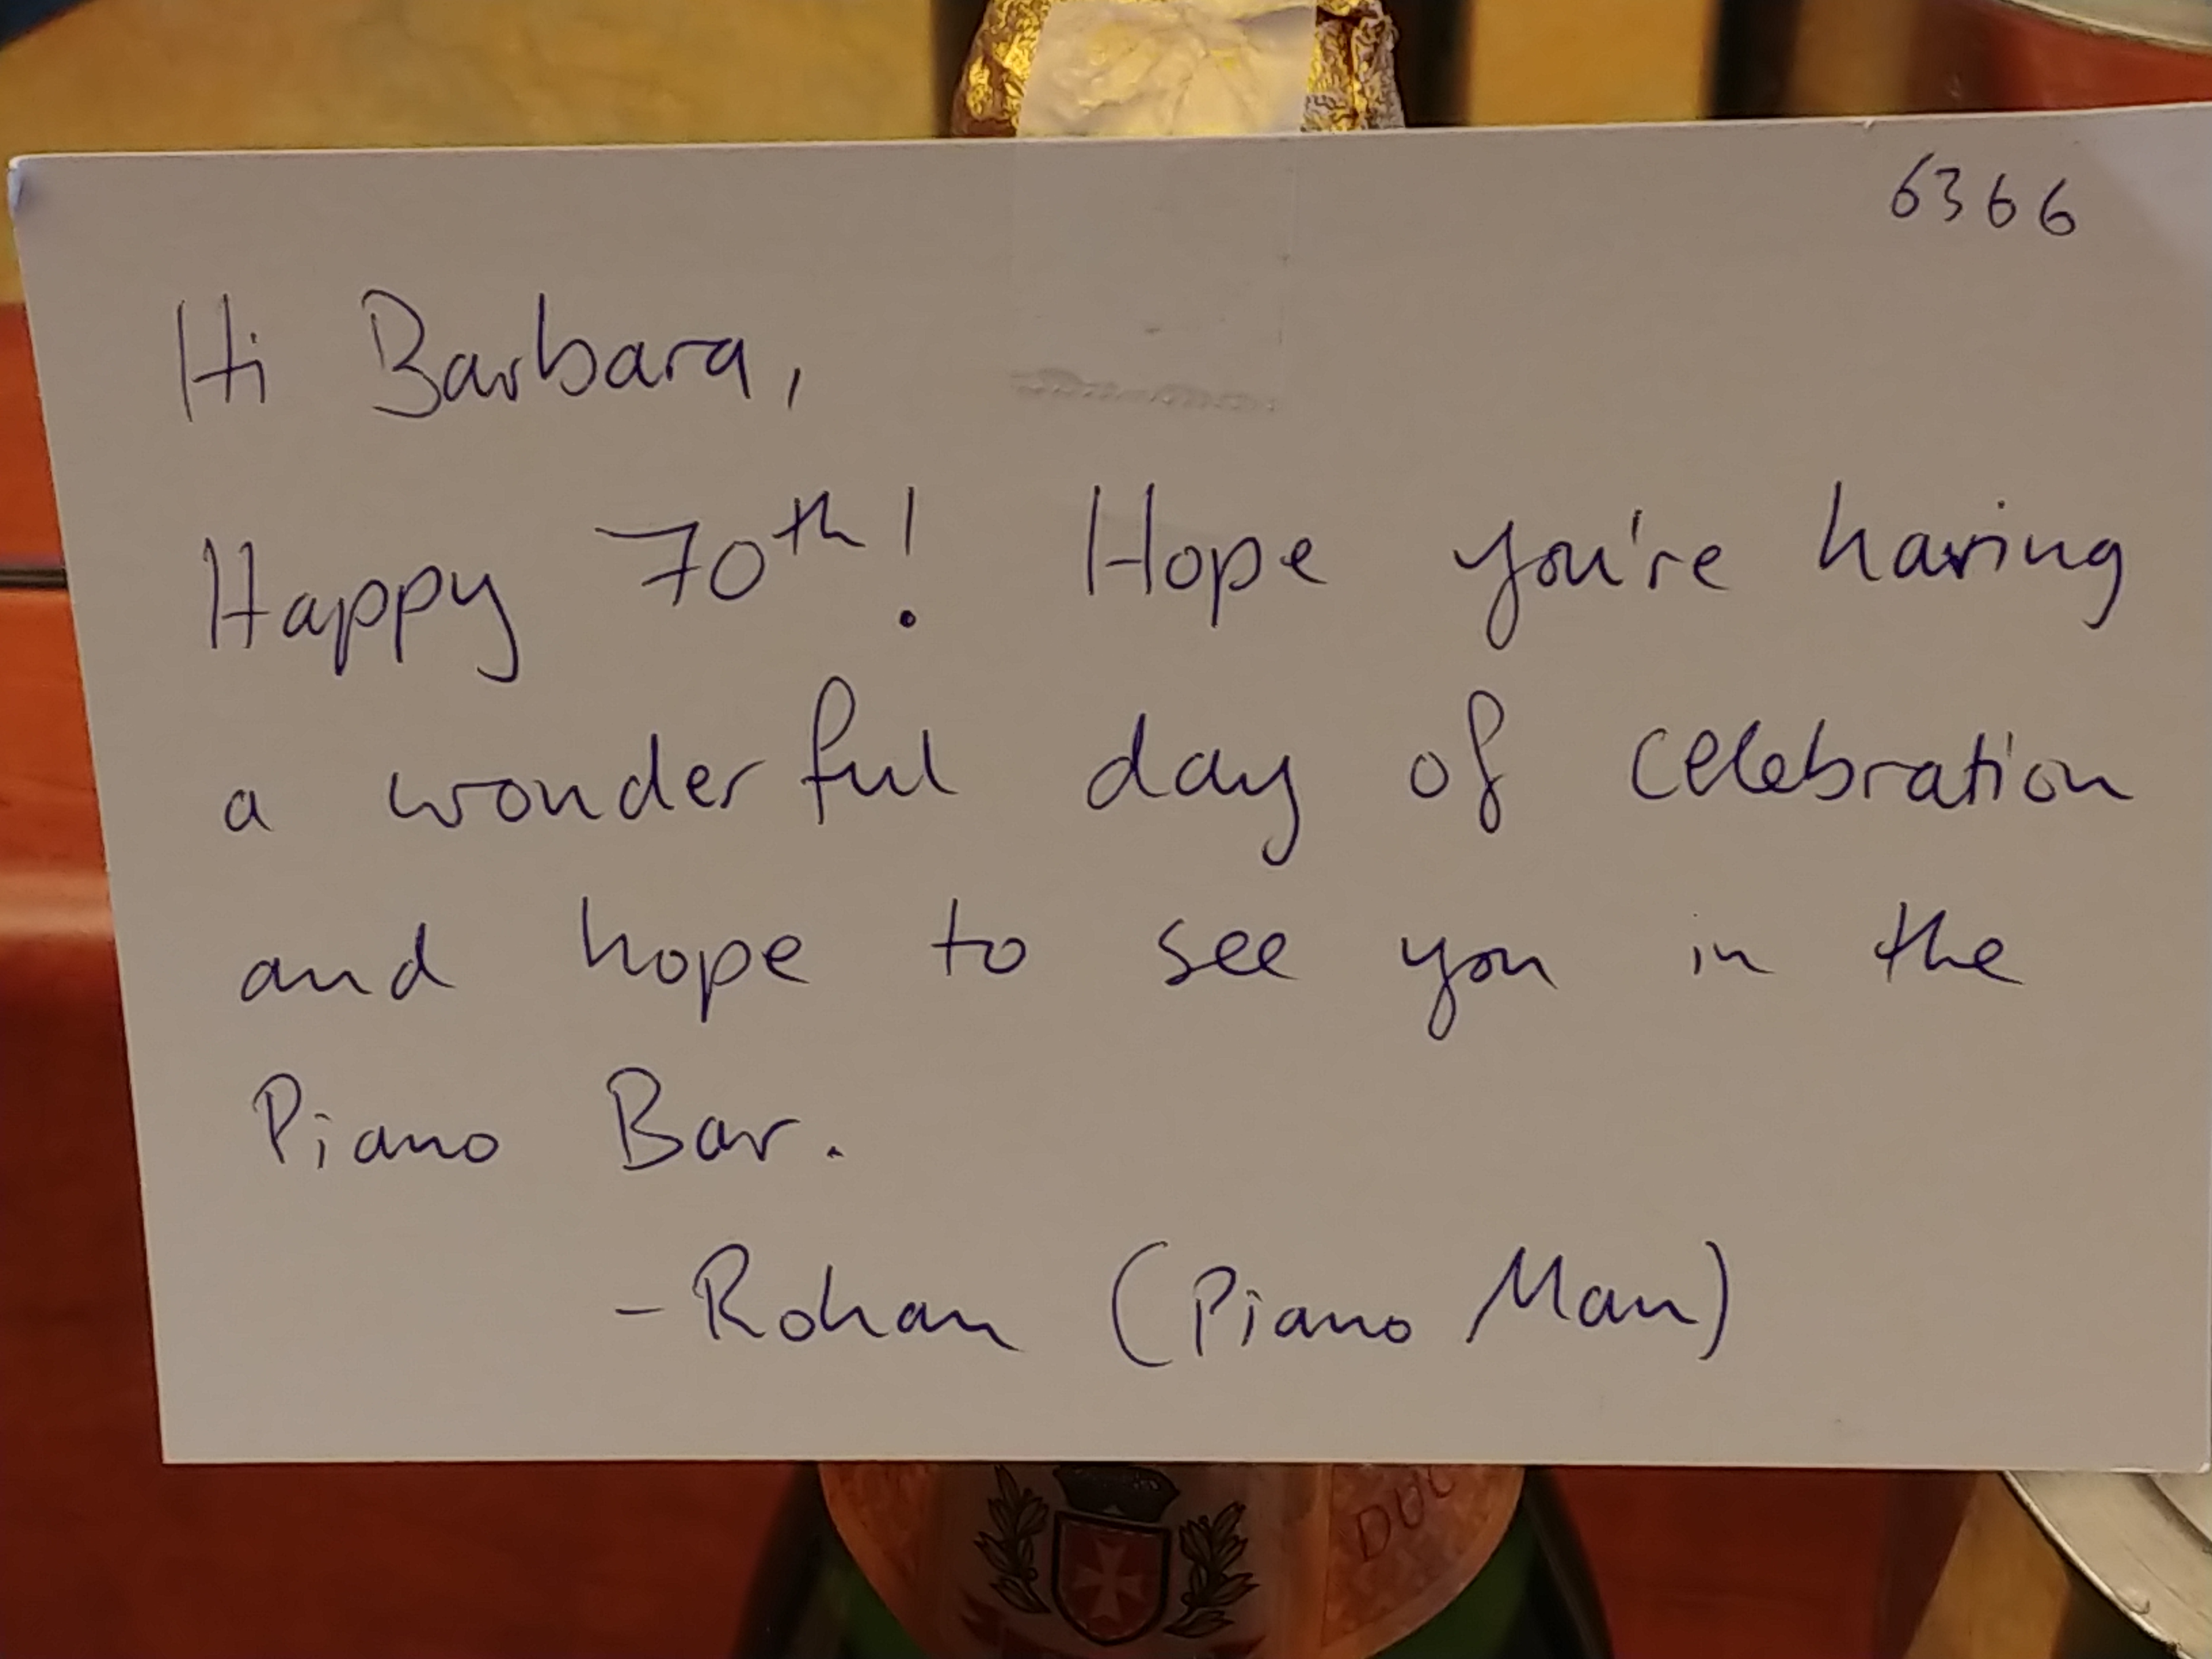 6366
Hi Barbara,
Happy 70th! Hope you're having
a wonderful day of celebration
and hope to see you in the
Piano Bar.
-Rohan (Piano Man)